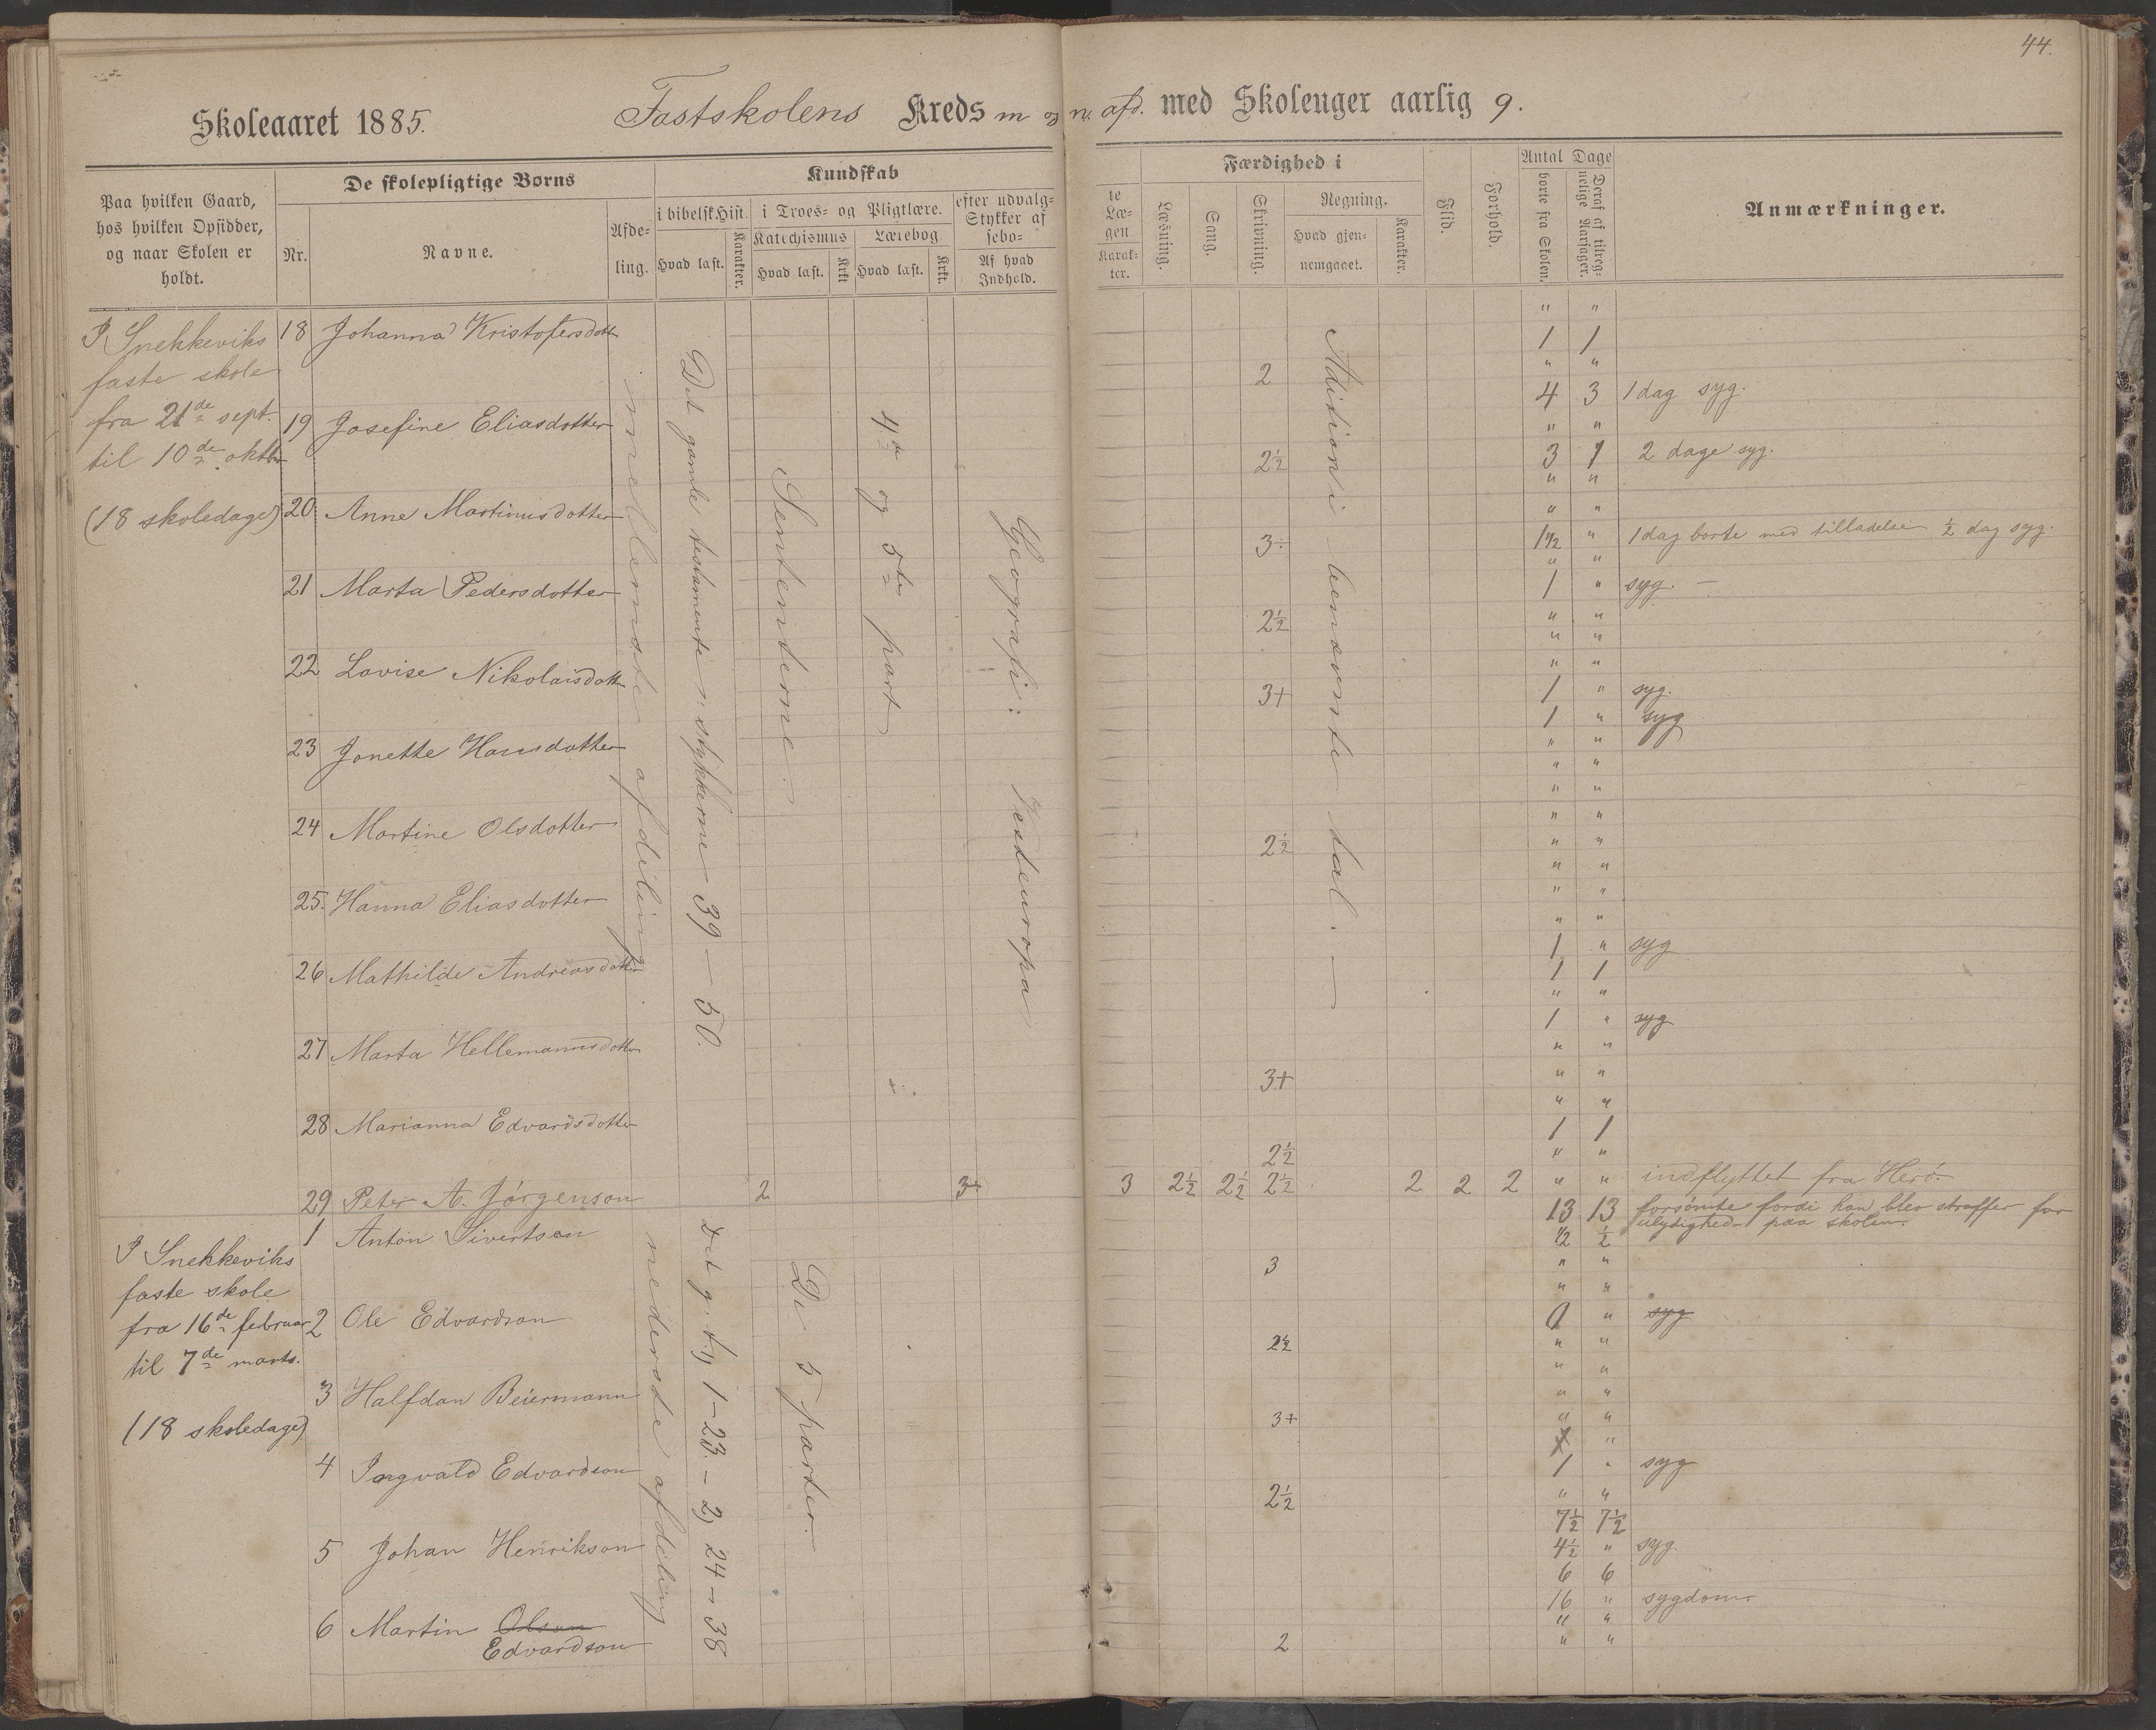 44.
Skoleaaret 1885. Fastskolens Kreds m og n. afd. med Skoleuger aarlig 9.
Paa hvilken Gaard, hos hvilken Opsidder, og naar Skolen er holdt.
De skolepligtige Børns
Nr.
Navne.
Afdeling.
Kundskab
i bibelsk Hist.
Hvad læst.
Karakter.
i Troes- og Pligtlære.
Katechismus
Hvad læst.
Krkt.
Lærebog.
Hvad læst.
Krkt.
efter udvalg-
Stykker af
sebo-
Af hvad Indhold.
te
Læ-
gen.
Karak-
ter.
Færdighed i
Læsning.
Sang.
Skrivning.
Regning.
Hvad gjen-
nemgaaet.
Karakter.
Flid.
Forhold.
Antal Dage
borte fra Skolen.
Deraf af tilreg-
nelige Aarsager.
Anmærkninger.
I Snekkeviks
faste skole
fra 21de sept.
til 10de oktbr
(18 skoledage)
mellemste afdeling.
Det gamle testamente: stykkerne 39 – 50.
Sentenserne.
4de og 5te part
Geografi: Vesteuropa
Aditioni benævnte tal. –
" "
18 Johanna Kristofersdott
1 1
" "
2
4 3 1 dag syg.
" "
19 Josefine Eliasdotter
2½ 3 1 2 dage syg.
" "
" "
20 Anne Martinusdotter
3÷ 1½ " 1 dag borte med tilladelse ½ dag syg.
" "
1 " syg. –
21 Marta Pedersdotter
2½ " "
" "
" "
22 Lovise Nikolaisdott
3+ 1 " syg.
1 " syg
" "
23 Jonette Hansdotter
" "
" "
" "
24 Martine Olsdotter
2½ " "
" "
" "
25. Hanna Eliasdotter
" "
1 " syg
1 1
26 Mathilde Andreasdotter
" "
1 " syg
" "
27 Marta Hellemannsdotter
3+ " "
" "
1 1
28 Marianna Edvardsdotter
2½ " "
29 Peter A. Jörgenson 2 3+ 3 2½ 2½ 2½ 2 2 2 " " indflyttet fra Herö.
I Snekkeviks
faste skole
fra 16de februar
til 7de marts.
(18 skoledage)
nederste afdeling
Det g. t. 1) 1–23. – 2) 24 – 38
De 5 parter.
13 13 forsömte fordi han blev straffer for
ulydighed paa skolen.
1 Anton Sivertson
½ ½
3 " "
" "
" syg
2 Ole Edvardson
2½ " "
" "
" "
3 Halfdan Beiermann
3+ " "
"
1 " syg
4 Ingvald Edvardson
2½ " "
7½ 7½
4½ " syg.
5 Johan Henrikson
6 6
16 " sygdom
" "
6 Martin Olson
Edvardson
2 " "